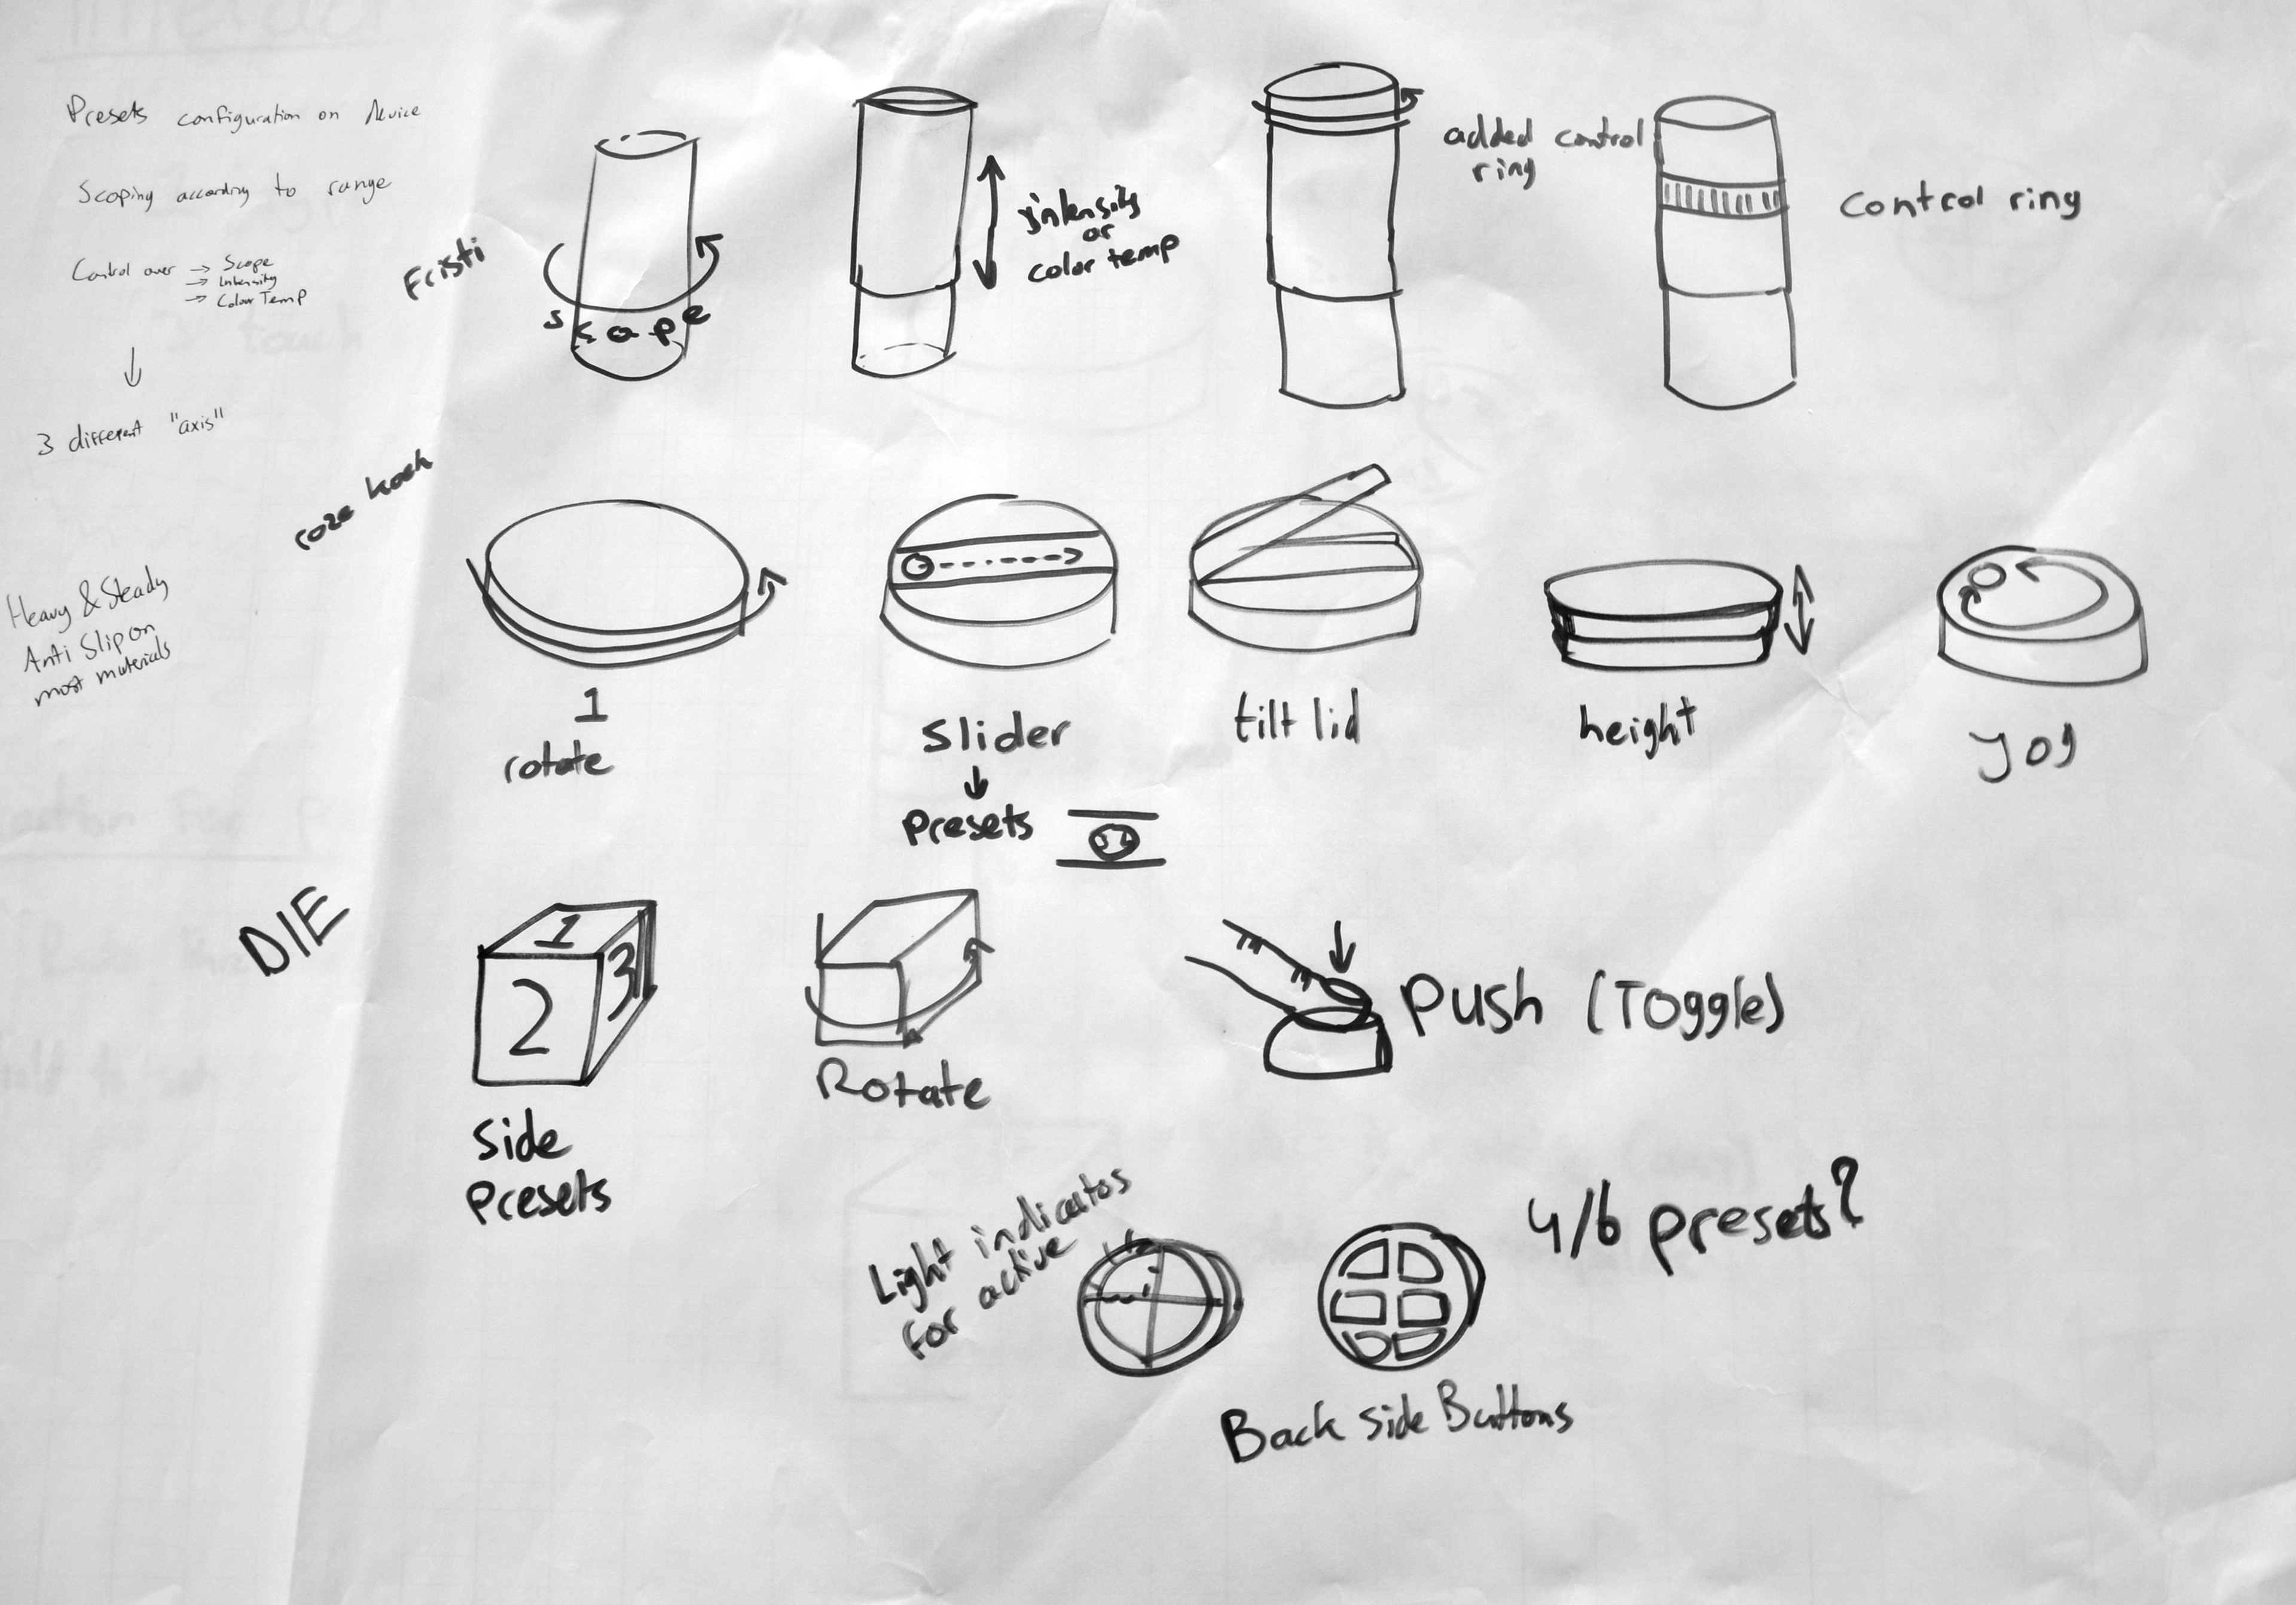 Presets configuration on device
Scoping according to range
Control over → Scope
→ Intensity
→ Colour Temp
↓
3 different "axis"
Heavy & Steady
Anti Slip on
most materials
Fristi
scope
intensity
or
color temp
added control
ring
control ring
roze koek
1
rotate
Slider
↓
Presets
tilt lid
height
jog
DIE
1
2
3
Side
Presets
Rotate
Push (Toggle)
Light indicators
for active
4/6 presets?
Back side Buttons